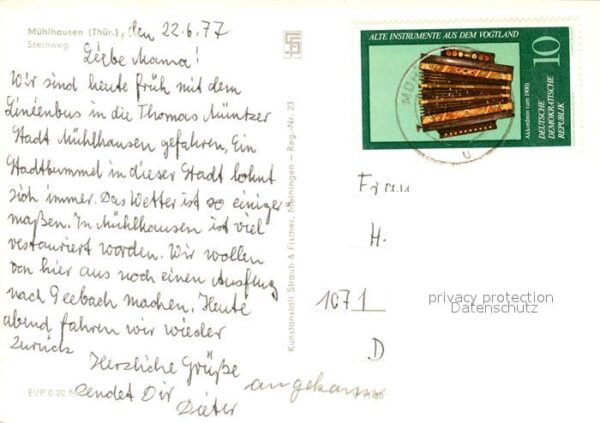 Mühlhausen (Thür.), den 22.6.77
Steinweg
Liebe Mama!
Wir sind heute früh mit dem
Linienbus in die Thomas Müntzer
Stadt Mühlhausen gefahren. Ein
Stadtbummel in dieser Stadt lohnt
sich immer. Das Wetter ist so einiger
maßen. In Mühlhausen ist viel
restauriert worden. Wir wollen
von hier aus noch einen Ausflug
nach Seebach machen. Heute
abend fahren wir wieder
zurück
Herzliche Grüße
sendet Dir
Dieter
EVP 0,20 M
Kunstanstalt Straub & Fischer, Meiningen – Reg.-Nr. 23
ALTE INSTRUMENTE AUS DEM VOGTLAND
10
Akkordeon (um 1900)
DEUTSCHE
DEMOKRATISCHE
REPUBLIK
Frau
H.
1071
D
privacy protection
Datenschutz